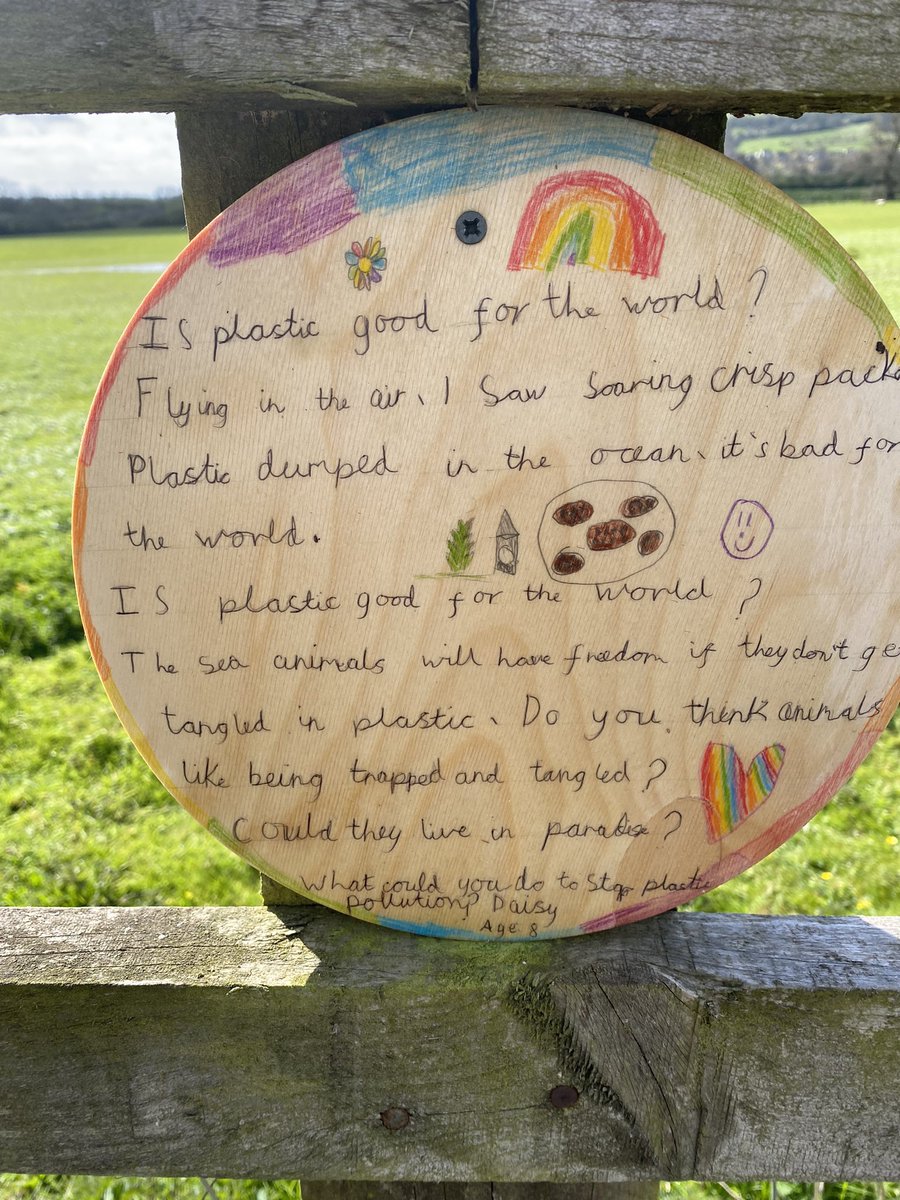 Is plastic good for the world?
Flying in the air, I saw soaring crisp pack
Plastic dumped in the ocean, it's bad for
the world.
Is plastic good for the world?
The sea animals will have freedom if they don't ge
tangled in plastic. Do you think animals
like being trapped and tangled?
Could they live in paradise?
What could you do to stop plastic
pollution? Daisy
Age 8